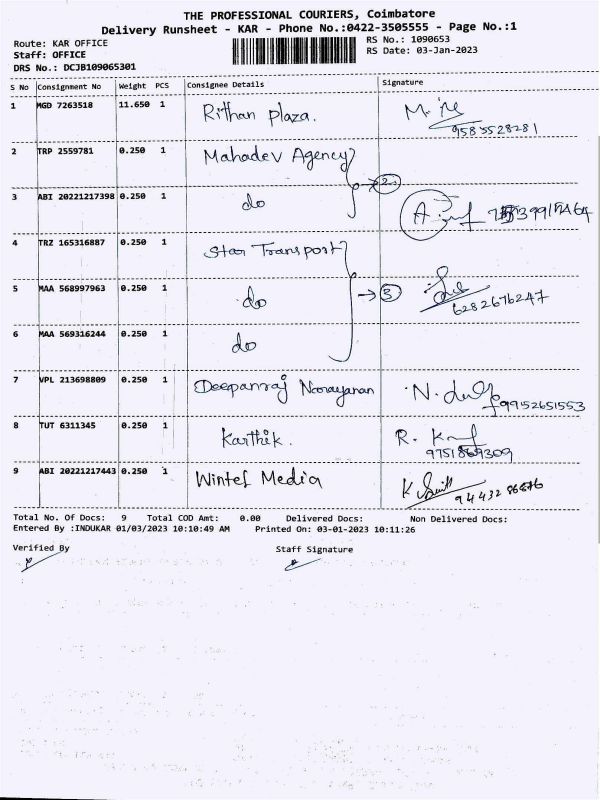 THE PROFESSIONAL COURIERS, Coimbatore
Delivery Runsheet - KAR - Phone No.:0422-3505555 - Page No.:1
Route: KAR OFFICE
Staff: OFFICE
DRS No.: DCJB109065301
RS No.: 1090653
RS Date: 03-Jan-2023
S No Consignment No Weight PCS Consignee Details Signature
1 MGD 7263518 11.650 1 Rithan plaza. M.
9585528281
2 TRP 2559781 0.250 1 Mahadev Agency
2
3 ABI 20221217398 0.250 1 do
4 TRZ 165316887 0.250 1 Star Transport
5 MAA 568997963 0.250 1 do → 3
6282676247
6 MAA 569316244 0.250 1 do
7 VPL 213698809 0.250 1 Deepanraj Narayanan N.
9952651553
8 TUT 6311345 0.250 1 Karthik. R.
9751869309
9 ABI 20221217443 0.250 1 Wintel Media K
Total No. Of Docs: 9 Total COD Amt: 0.00 Delivered Docs: Non Delivered Docs:
Entered By :INDUKAR 01/03/2023 10:10:49 AM Printed On: 03-01-2023 10:11:26
Verified By Staff Signature